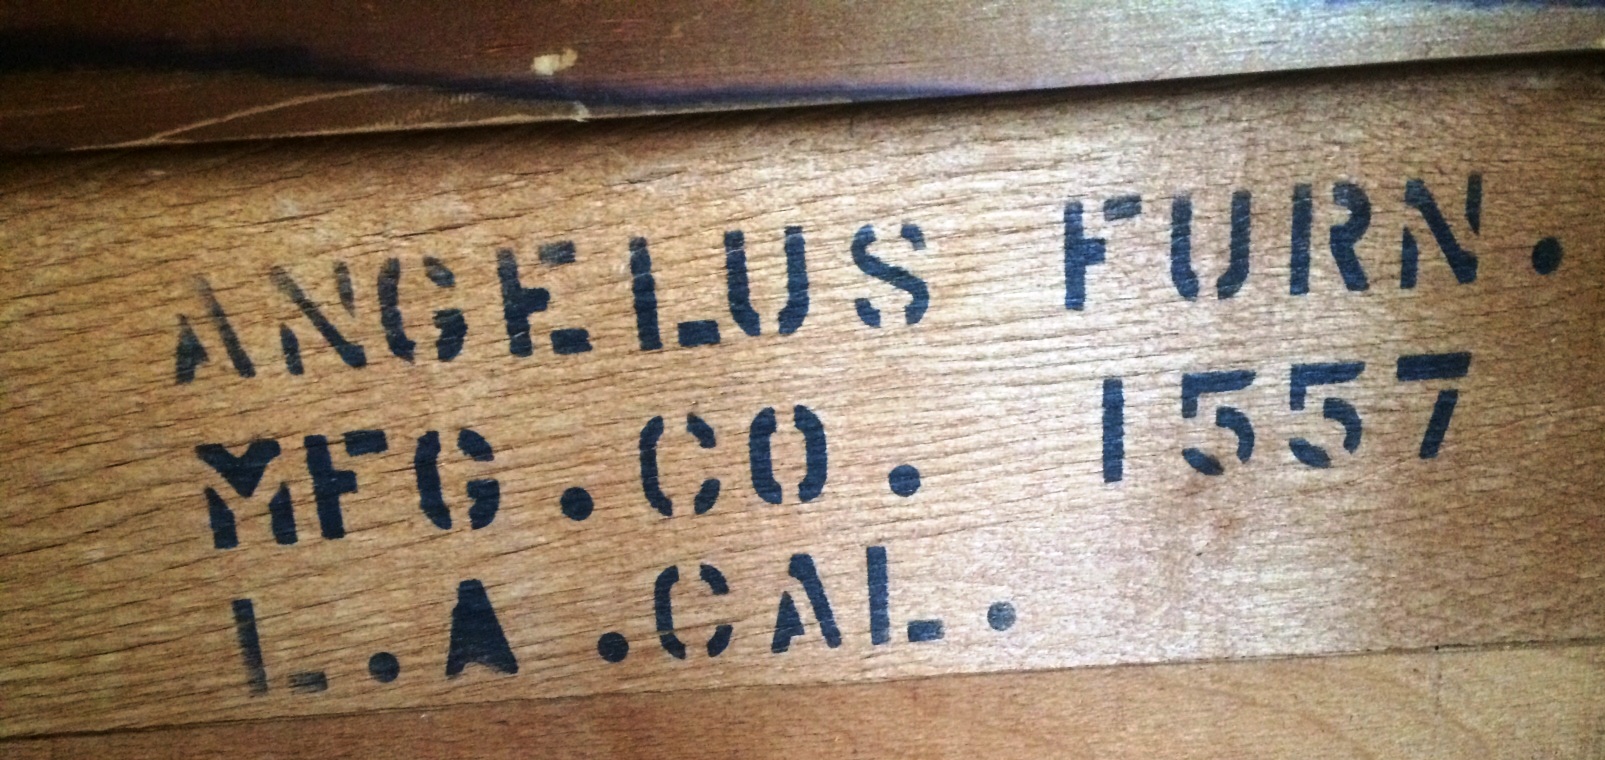 ANGELUS FURN.
MFG.CO. 1557
L.A.CAL.